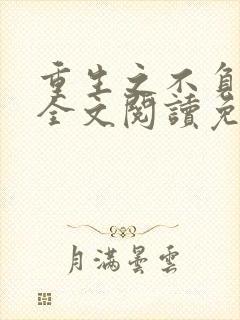 重生之不負
全文閱讀免
月滿曇雲